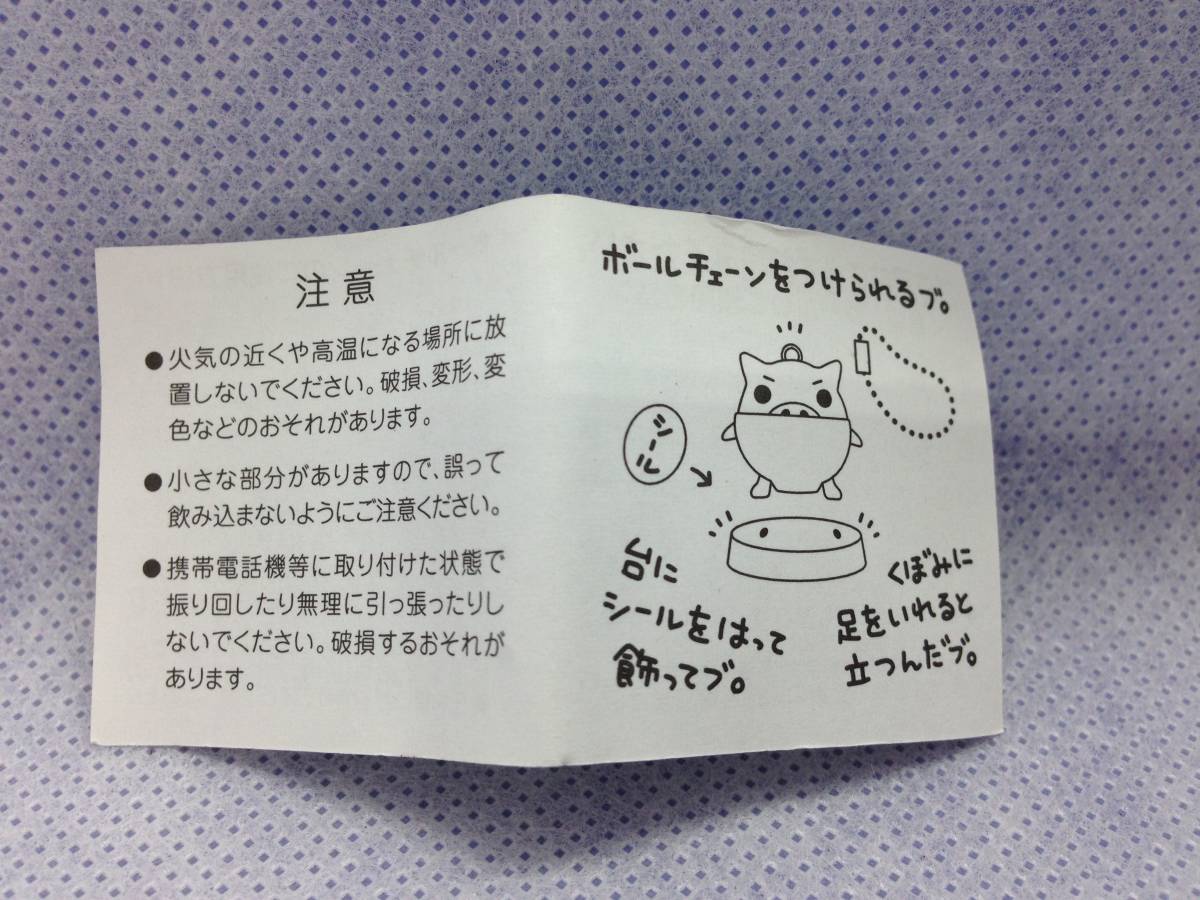 注意
●火気の近くや高温になる場所に放
置しないでください。破損、変形、変
色などのおそれがあります。
●小さな部分がありますので、誤って
飲み込まないようにご注意ください。
●携帯電話機等に取り付けた状態で
振り回したり無理に引っ張ったりし
ないでください。破損するおそれが
あります。
ボールチェーンをつけられるブ。
シール
台に
シールをはって
飾ってブ。
くぼみに
足をいれると
立つんだブ。